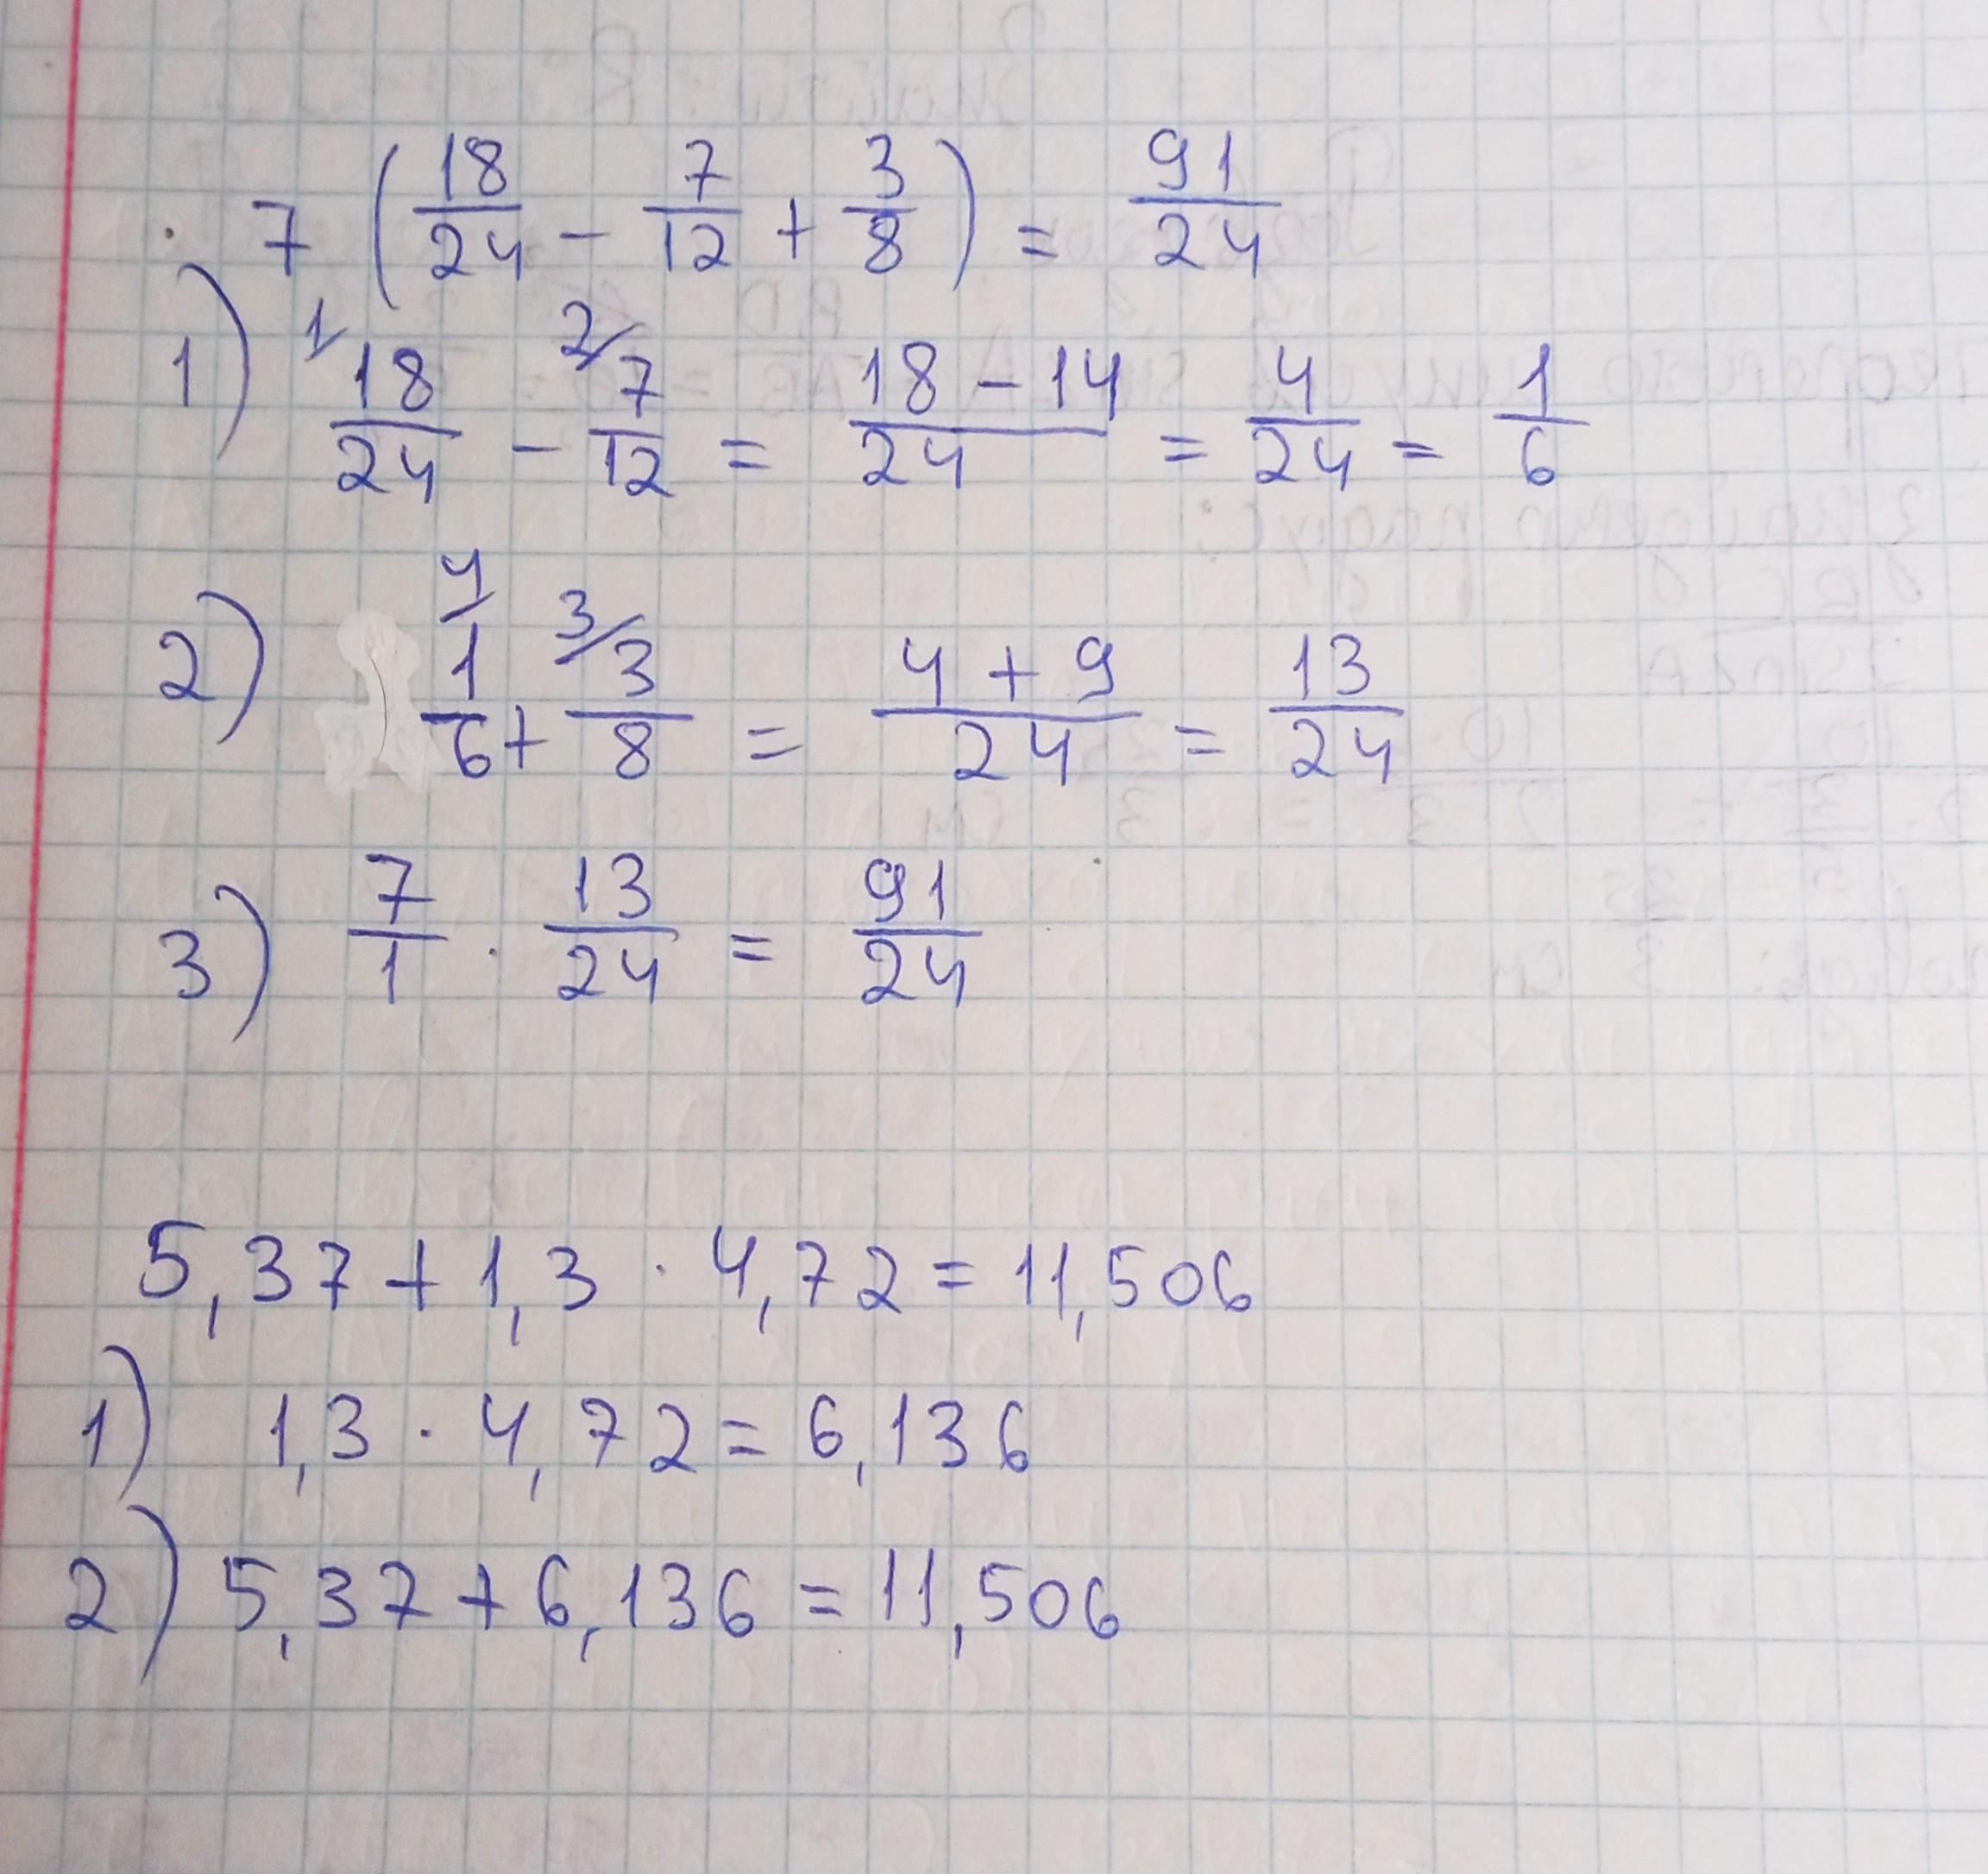 7 (18/24 - 7/12 + 3/8) = 91/24
1) 1/ 18/24 - 2/ 7/12 = 18-14/24 = 4/24 = 1/6
2) 4/ 1/6 + 3/ 3/8 = 4+9/24 = 13/24
3) 7/1 · 13/24 = 91/24
5,37 + 1,3 · 4,72 = 11,506
1) 1,3 · 4,72 = 6,136
2) 5,37 + 6,136 = 11,506